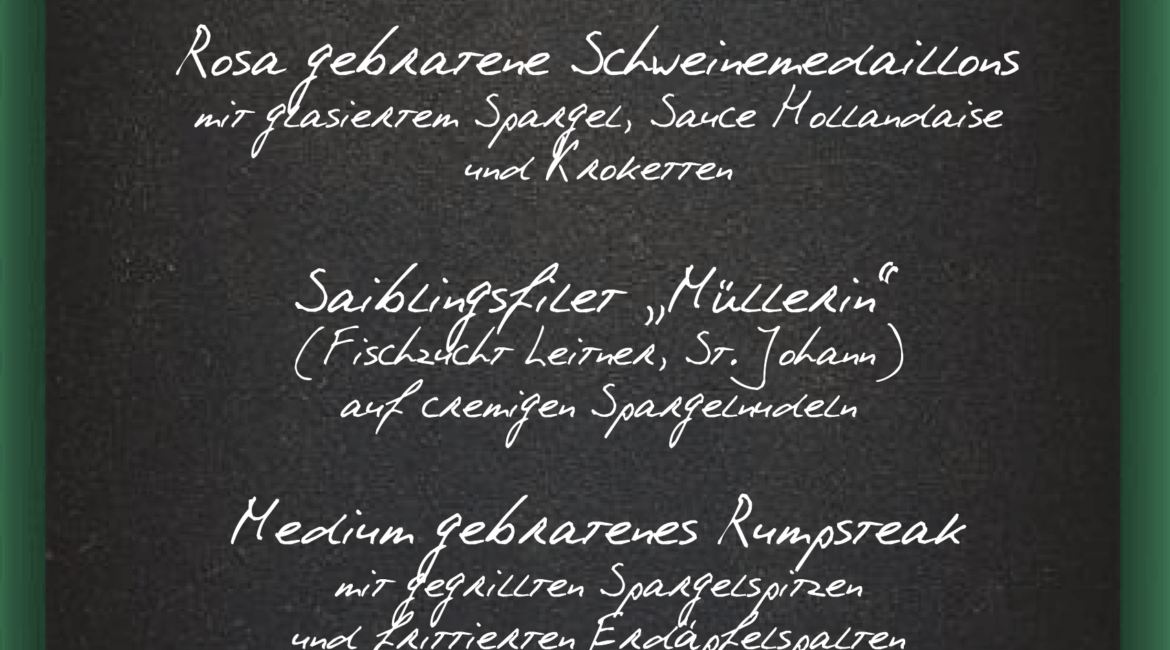 Rosa gebratene Schweinemedaillons
mit glasiertem Spargel, Sauce Hollandaise
und Kroketten
Saiblingsfilet „Müllerin“
(Fischzucht Leitner, St. Johann)
auf cremigen Spargelnudeln
Medium gebratenes Rumpsteak
mit gegrillten Spargelspitzen
und frittierten Erdäpfelspalten